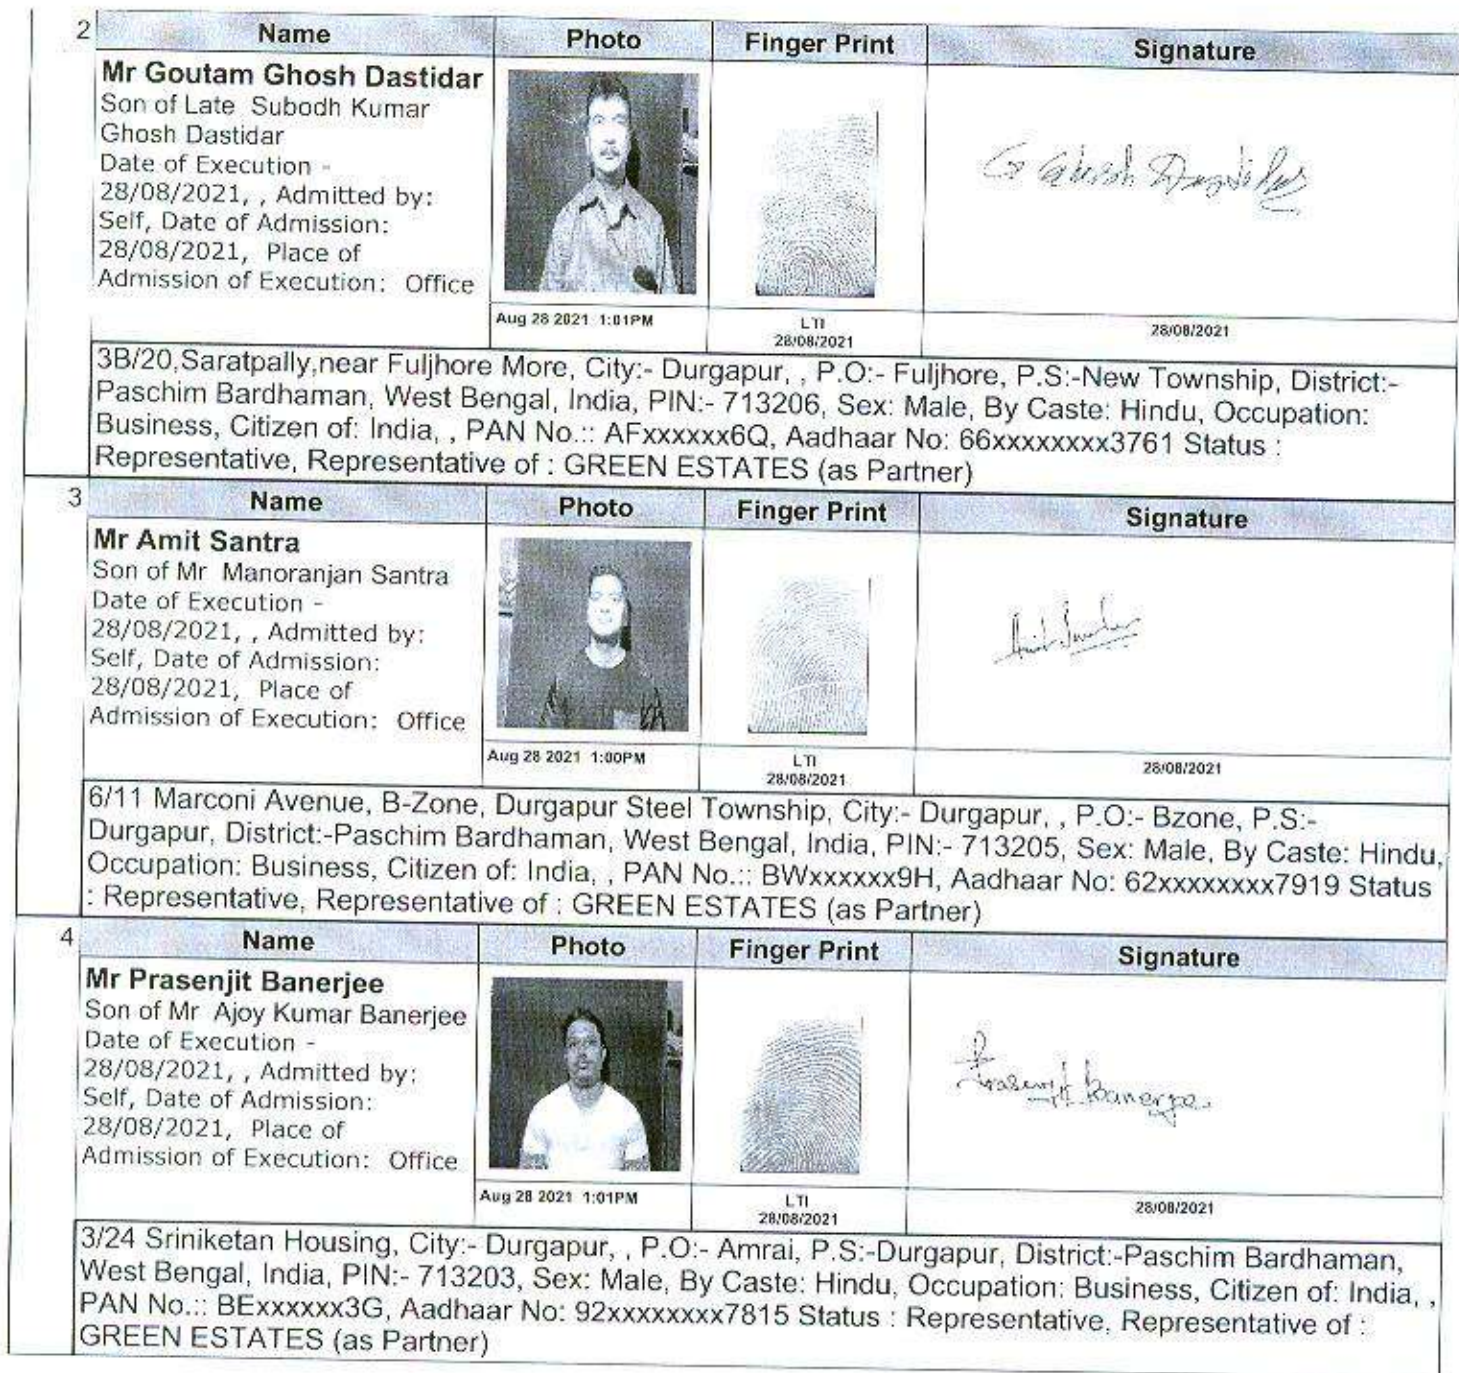 2 Name Photo Finger Print Signature
Mr Goutam Ghosh Dastidar
Son of Late Subodh Kumar
Ghosh Dastidar
Date of Execution -
28/08/2021, , Admitted by:
Self, Date of Admission:
28/08/2021, Place of
Admission of Execution: Office
G Ghosh Dastidar
Aug 28 2021 1:01PM
LTI
28/08/2021
28/08/2021
3B/20,Saratpally,near Fuljhore More, City:- Durgapur, , P.O:- Fuljhore, P.S:-New Township, District:-
Paschim Bardhaman, West Bengal, India, PIN:- 713206, Sex: Male, By Caste: Hindu, Occupation:
Business, Citizen of: India, , PAN No.:: AFxxxxxx6Q, Aadhaar No: 66xxxxxxxx3761 Status :
Representative, Representative of : GREEN ESTATES (as Partner)
3 Name Photo Finger Print Signature
Mr Amit Santra
Son of Mr Manoranjan Santra
Date of Execution -
28/08/2021, , Admitted by:
Self, Date of Admission:
28/08/2021, Place of
Admission of Execution: Office
Amit Santra
Aug 28 2021 1:00PM
LTI
28/08/2021
28/08/2021
6/11 Marconi Avenue, B-Zone, Durgapur Steel Township, City:- Durgapur, , P.O:- Bzone, P.S:-
Durgapur, District:-Paschim Bardhaman, West Bengal, India, PIN:- 713205, Sex: Male, By Caste: Hindu,
Occupation: Business, Citizen of: India, , PAN No.:: BWxxxxxx9H, Aadhaar No: 62xxxxxxxx7919 Status
: Representative, Representative of : GREEN ESTATES (as Partner)
4 Name Photo Finger Print Signature
Mr Prasenjit Banerjee
Son of Mr Ajoy Kumar Banerjee
Date of Execution -
28/08/2021, , Admitted by:
Self, Date of Admission:
28/08/2021, Place of
Admission of Execution: Office
Prasenjit Banerjee
Aug 28 2021 1:01PM
LTI
28/08/2021
28/08/2021
3/24 Sriniketan Housing, City:- Durgapur, , P.O:- Amrai, P.S:-Durgapur, District:-Paschim Bardhaman,
West Bengal, India, PIN:- 713203, Sex: Male, By Caste: Hindu, Occupation: Business, Citizen of: India, ,
PAN No.:: BExxxxxx3G, Aadhaar No: 92xxxxxxxx7815 Status : Representative, Representative of :
GREEN ESTATES (as Partner)